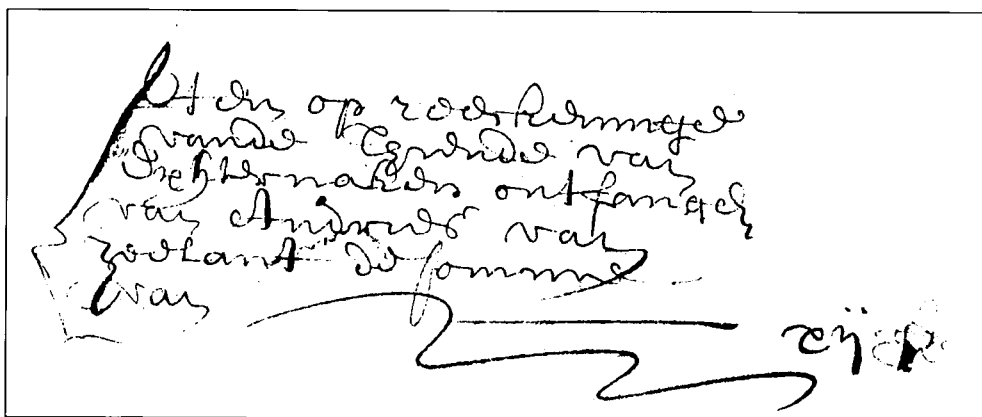 Item op reeckeninge
vande thiende van
Sichternaken ontfangen
van Andries van
zoelant de somme
van
xij £